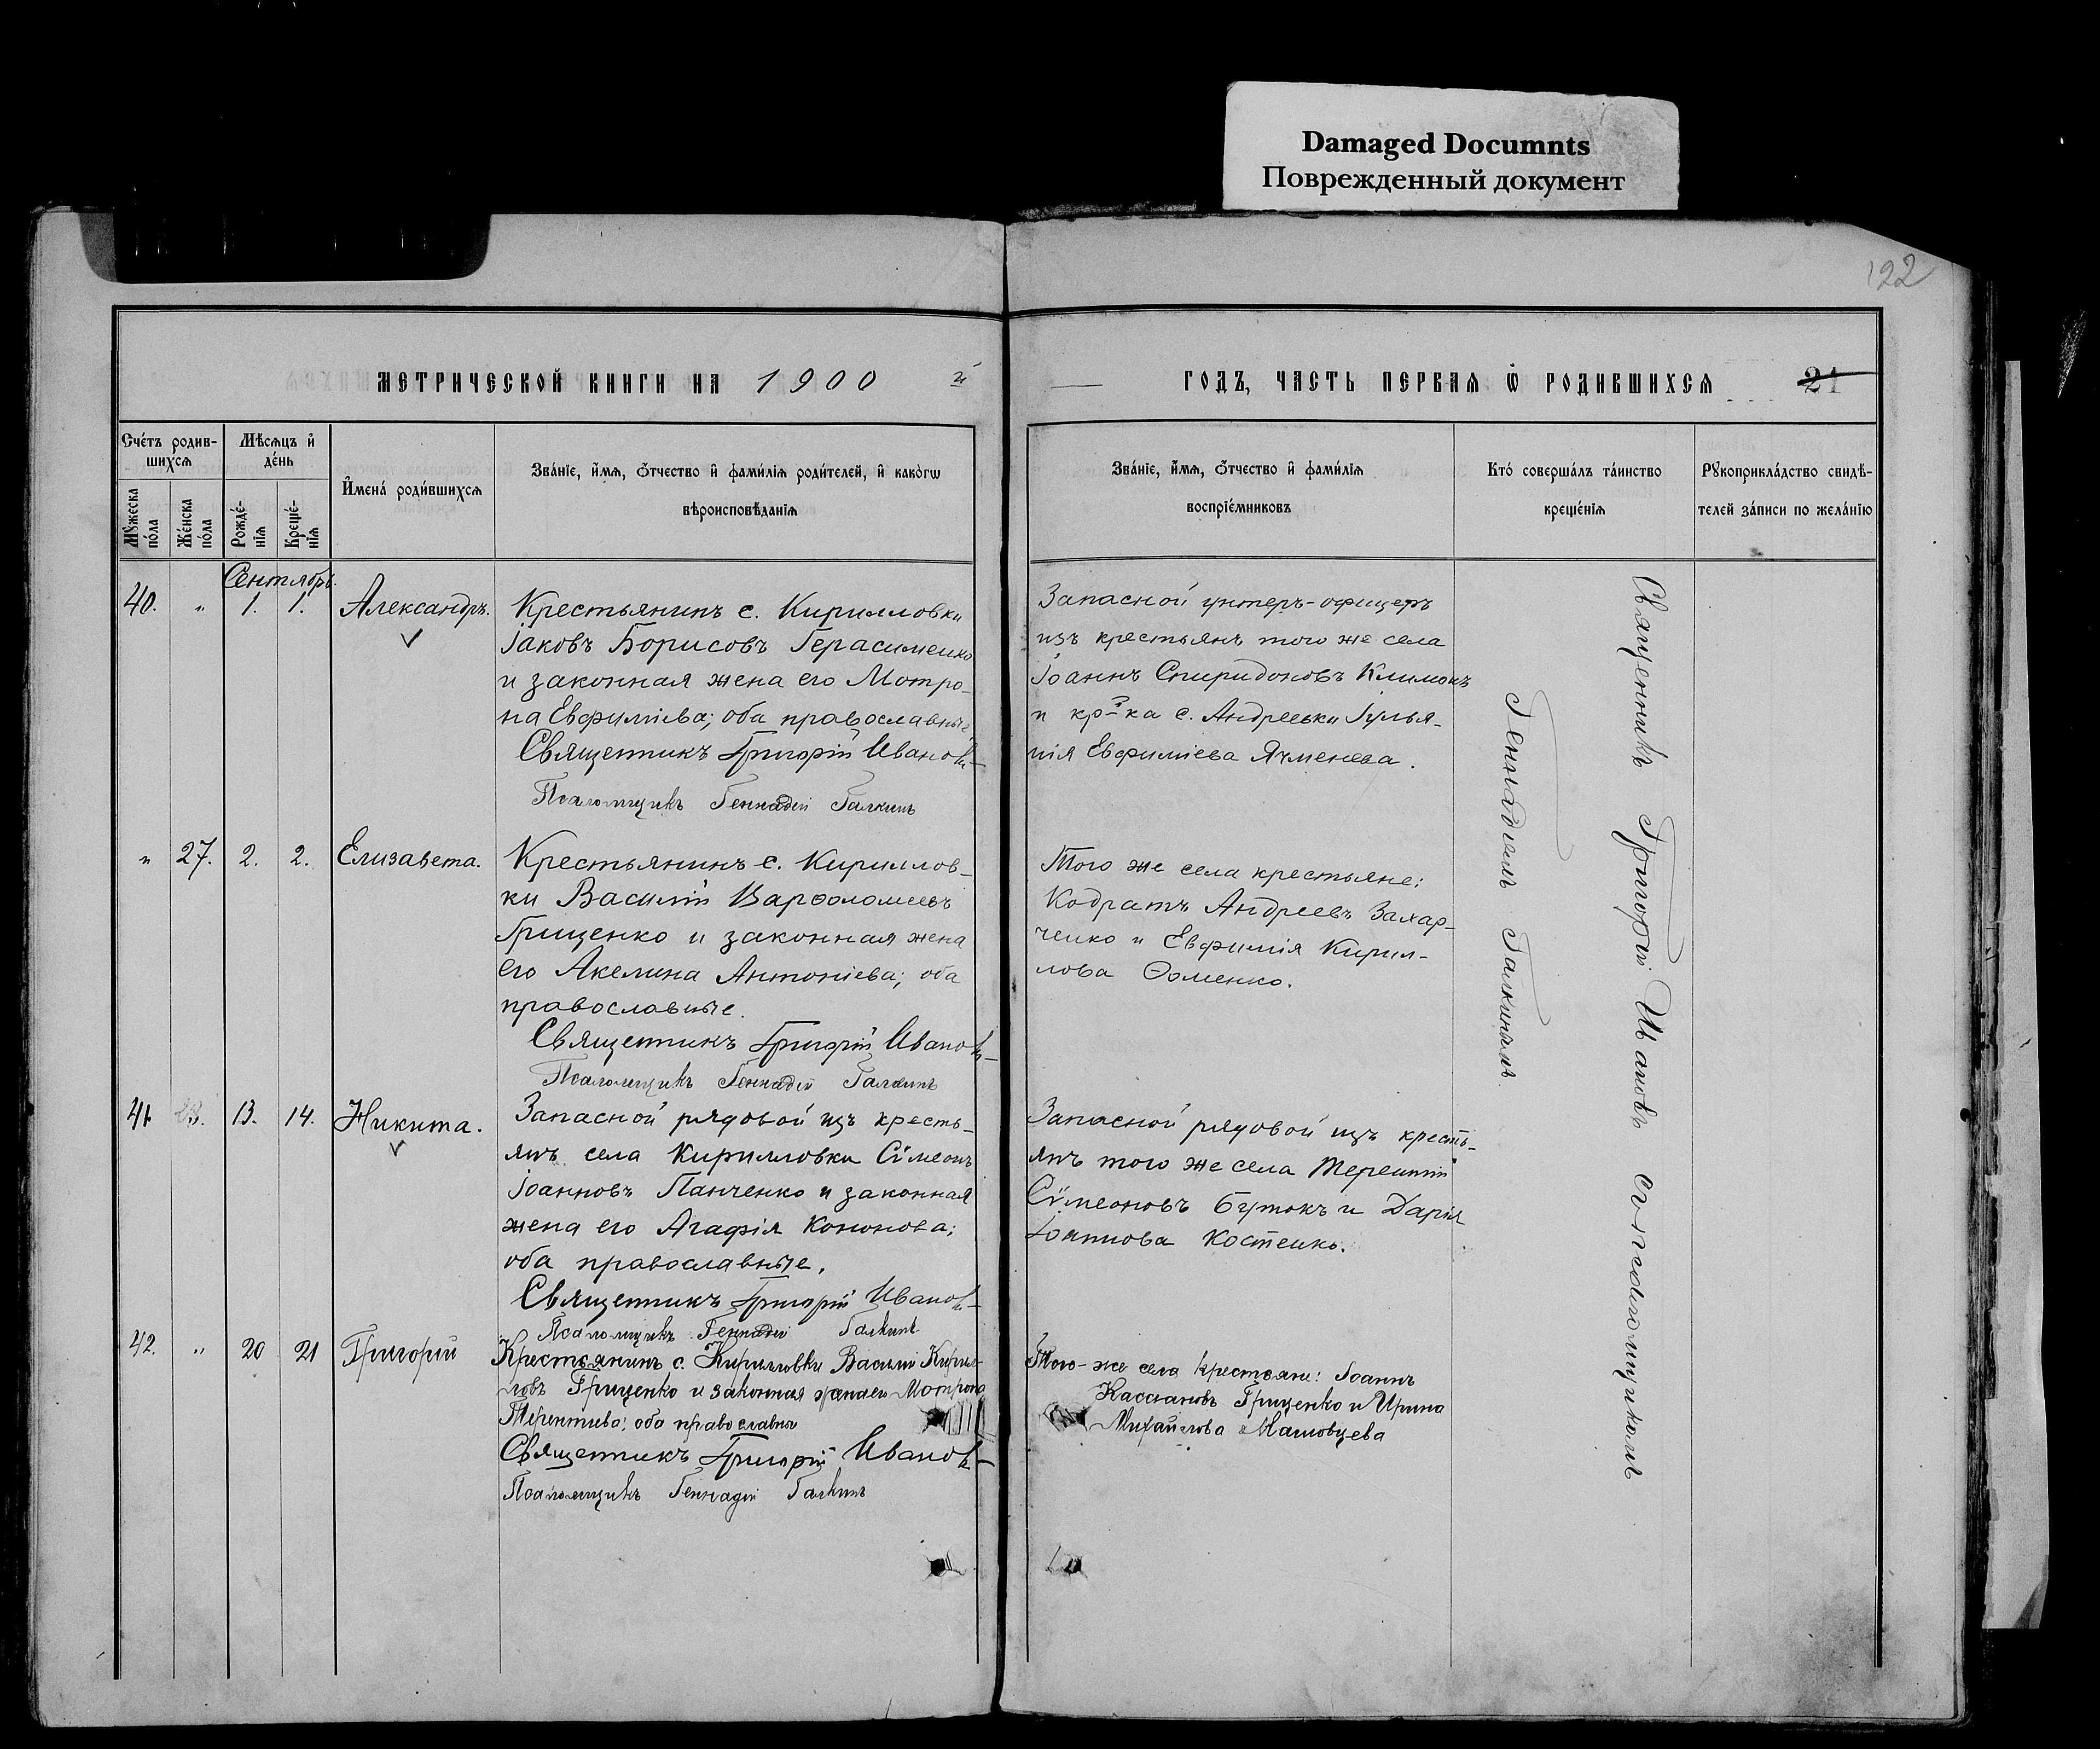 Damaged Documnts
Поврежденный документ
122
МЕТРИЧЕСКОЙ КНИГИ НА 1900 й
ГОДЪ, ЧАСТЬ ПЕРВАЯ Ѡ РОДИВШИХСЯ
21
Сче́тъ родив-
шихсѧ
Мѣсяцъ и҆
де́нь
Мꙋ́жеска
по́ла
Же́нска
по́ла
Рожде́-
нїѧ
Креще́-
нїѧ
И҆мена́ роди́вшихсѧ
Зва́нїе, и҆́мѧ, ѻ҆́тчество и҆ фами́лїѧ роди́телей, и҆ како́гѡ
вѣроисповѣ́данїѧ
Зва́нїе, и҆́мѧ, ѻ҆́тчество и҆ фами́лїѧ
воспрїе́мниковъ
Кто́ соверша́лъ та́инство
креще́нїѧ
Рꙋкоприкла́дство свидѣ́-
телей за́писи по жела́нїю
Сентябрь.
40. " 1. 1. Александръ.
Крестьянинъ с. Кирилловки
Іаковъ Борисовъ Герасименко
и законная жена его Мотро-
на Евфиміева; оба православные
Священникъ Григорій Ивановъ
Псаломщикъ Геннадій Галкинъ
Запасной унтеръ-офицеръ
изъ крестьянъ того же села
Іоаннъ Спиридоновъ Климокъ
и кр-ка с. Андреевки Іулья-
нія Евфиміева Ячменева.
" 27. 2. 2. Елизавета.
Крестьянинъ с. Кириллов-
ки Василій Варѳоломеевъ
Грищенко и законная жена
его Акелина Антоніева; оба
православные.
Священникъ Григорій Ивановъ
Псаломщикъ Геннадій Галкинъ
Того же села крестьяне:
Кодратъ Андреевъ Захар-
ченко и Евфимія Кирил-
лова Ѳоменко.
41. 13. 14. Никита.
Запасной рядовой изъ кресть-
янъ села Кирилловки Сѷмеонъ
Іоанновъ Панченко и законная
жена его Агафія Кононова;
оба православные.
Священникъ Григорій Ивановъ
Псаломщикъ Геннадій Галкинъ
Запасной рядовой изъ кресть-
янъ того же села Терентій
Сѷмеоновъ Бутокъ и Дарія
Іоаннова Костенко.
42. " 20 21 Григорій
Крестьянинъ с. Кирилловки Василій Кирил-
ловъ Грищенко и законная жена его Мотрона
Терентиева; оба православны
Священникъ Григорій Ивановъ
Псаломщикъ Геннадій Галкинъ
Того-же села крестьяне: Іоаннъ
Кассіановъ Грищенко и Ирина
Михайлова
Священникъ Григорій Ивановъ съ псаломщикомъ
Геннадіемъ Галкинымъ